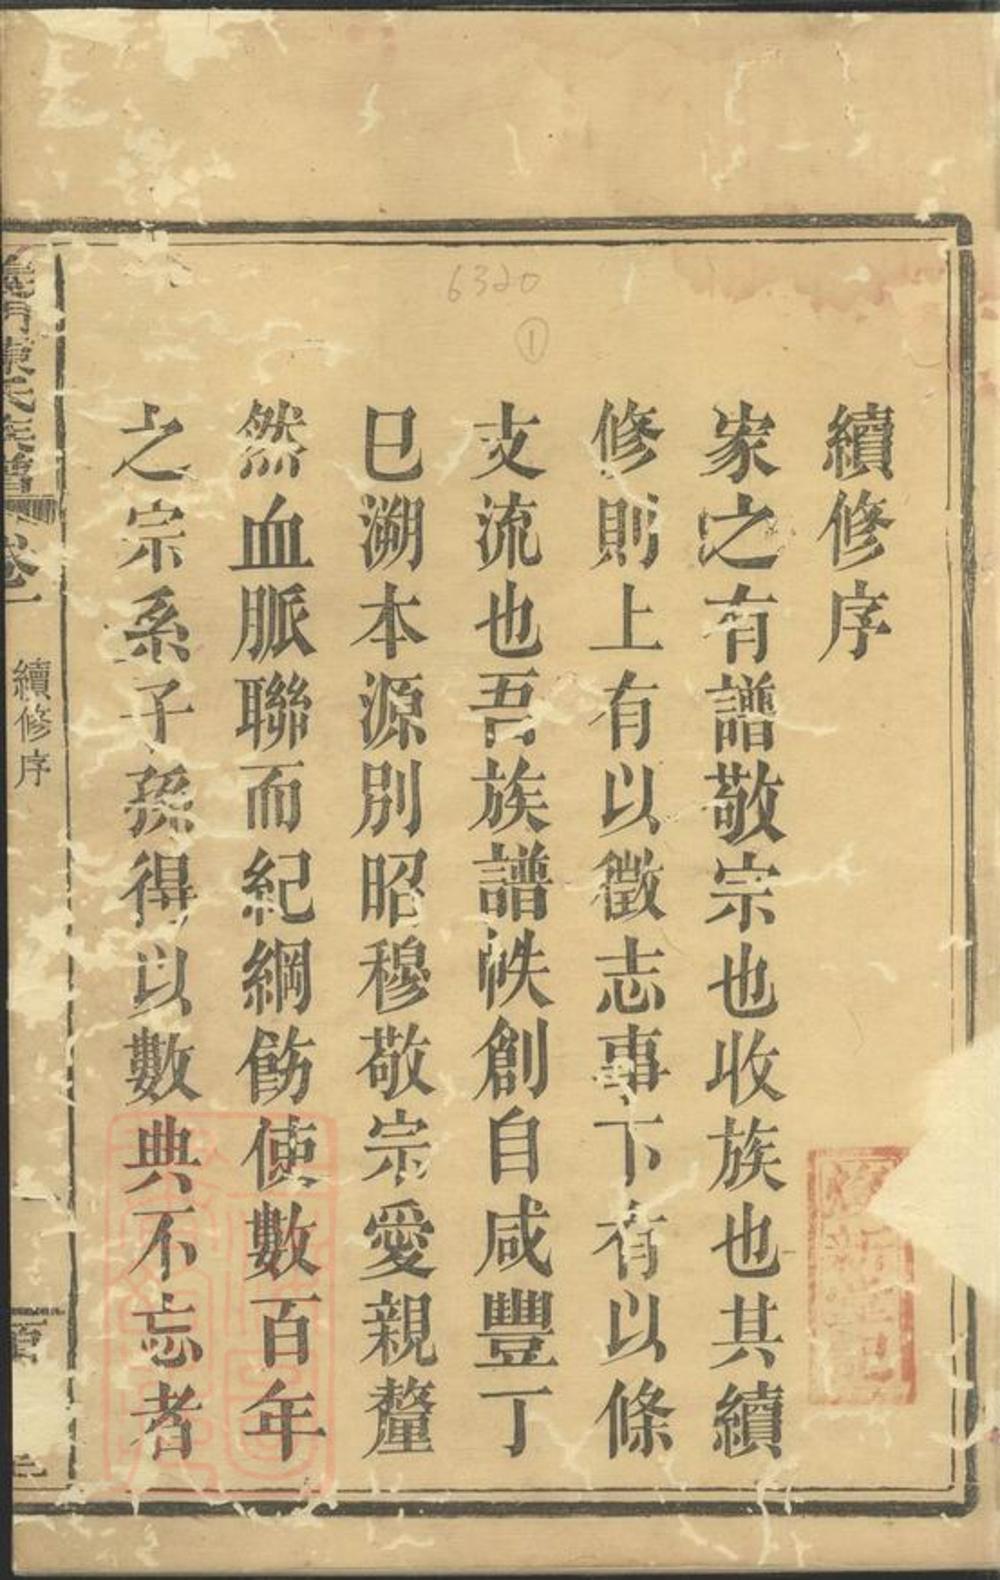 6320
①
續修序
家之有譜敬宗也收族也其續
修則上有以徵志事下有以條
支流也吾族譜帙創自咸豐丁
巳溯本源別昭穆敬宗愛親釐
然血脈聯而紀綱飭使數百年
之宗系子孫得以數典不忘者
義門陳氏族譜
卷一
續修序
一